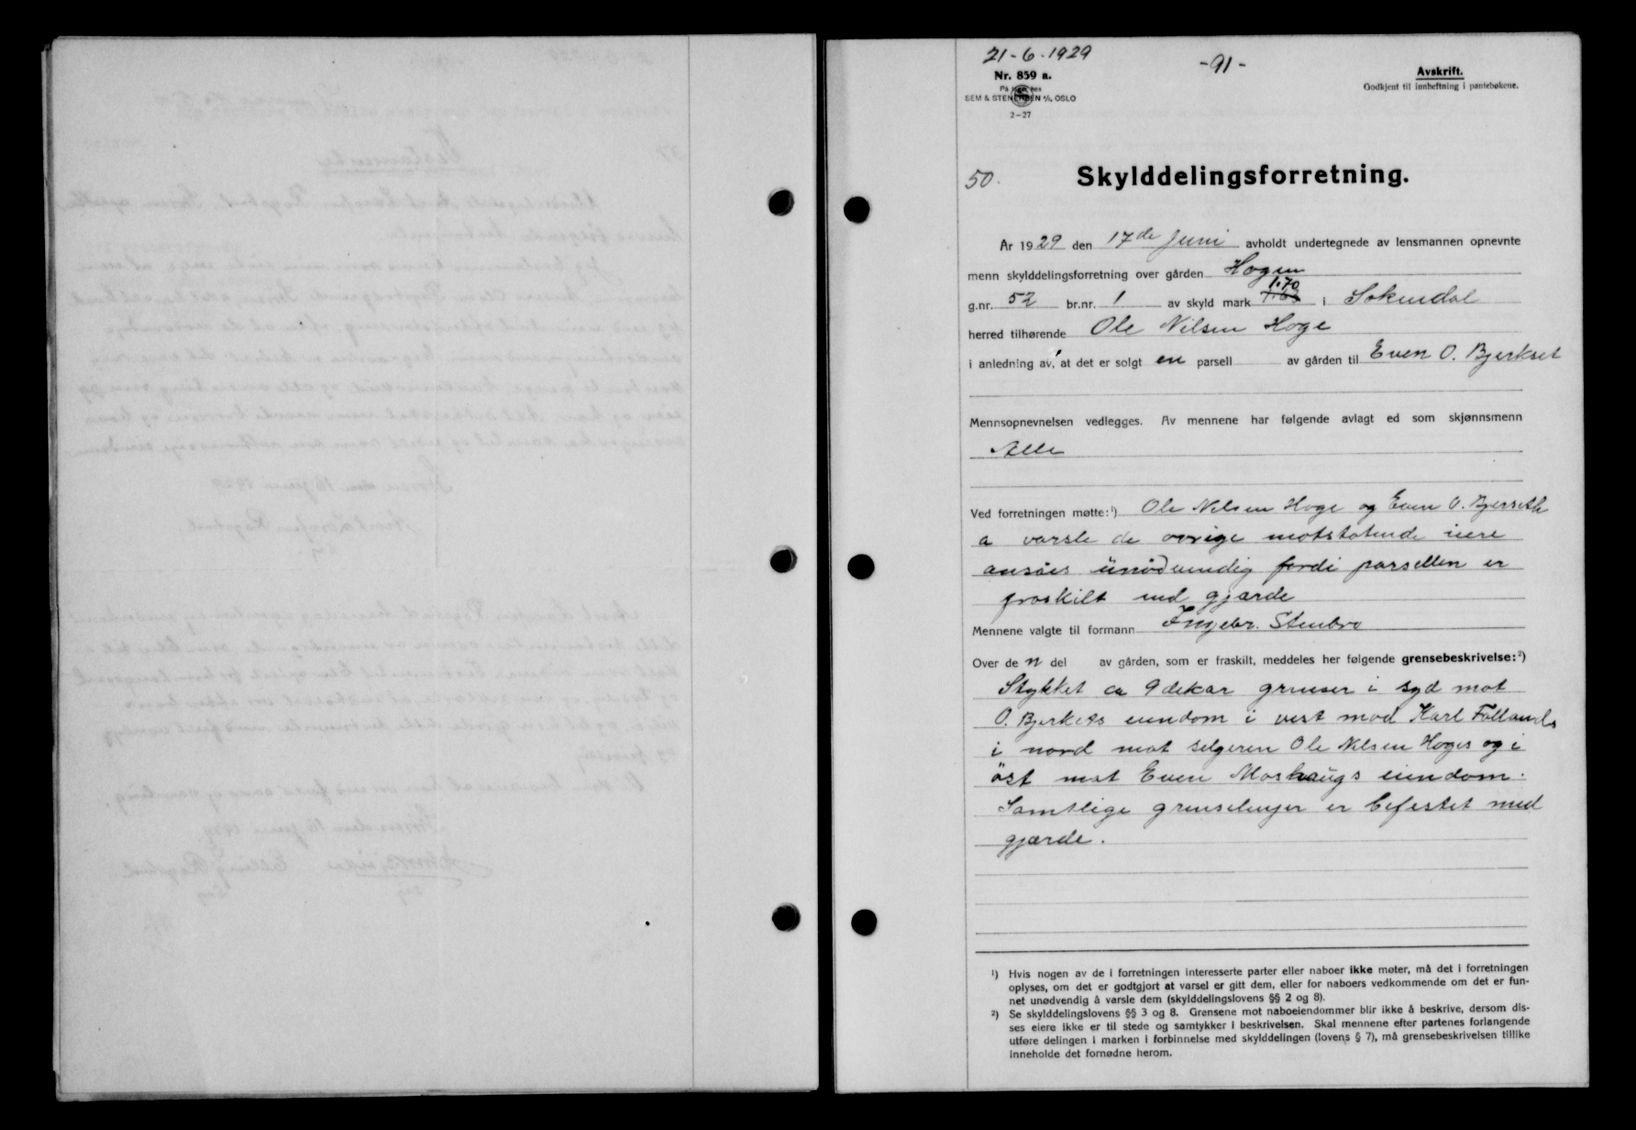 21-6-1929
-91-
Nr. 859 a.
Avskrift.
Godkjent til innheftning i pantebøkene.
SEM & STENERSEN A/S, OSLO
2-27
50.
Skylddelingsforretning.
År 1929 den 17de Juni avholdt undertegnede av lensmannen opnevnte
menn skylddelingsforretning over gården Hogen
1.70
g.nr. 52 br.nr. 1 av skyld mark i Sokendal
herred tilhørende Ole Nilsen Hoge
i anledning av, at det er solgt en parsell av gården til Even O. Bjerkset
Mennsopnevnelsen vedlegges. Av mennene har følgende avlagt ed som skjønnsmenn
Alle
Ved forretningen møtte:¹) Ole Nilsen Hoge og Even O. Bjerseth
a varsle de øvrige motstøtende eiere
ansåes unødvendig fordi parsellen er
fraskilt med gjærde
Mennene valgte til formann Ingebr. Stenbro
Over den del av gården, som er fraskilt, meddeles her følgende grensebeskrivelse:²)
Stykket ca 9 dekar grenser i syd mot
O. Bjerkets eiendom i vest mod Karl Føllands
i nord mot selgeren Ole Nilsen Hoges og i
øst mot Even Moshaugs eiendom.
Samtlige grenselinjer er befestet med
gjærde.
¹) Hvis nogen av de i forretningen interesserte parter eller naboer ikke møter, må det i forretningen
oplyses, om det er godtgjort at varsel er gitt dem, eller for naboers vedkommende om det er fun-
net unødvendig å varsle dem (skylddelingslovens §§ 2 og 8).
²) Se skylddelingslovens §§ 3 og 8. Grensene mot naboeiendommer blir ikke å beskrive, dersom dis-
ses eiere ikke er til stede og samtykker i beskrivelsen. Skal mennene efter partenes forlangende
utføre delingen i marken i forbinnelse med skylddelingen (lovens § 7), må grensebeskrivelsen tillike
inneholde det fornødne herom.